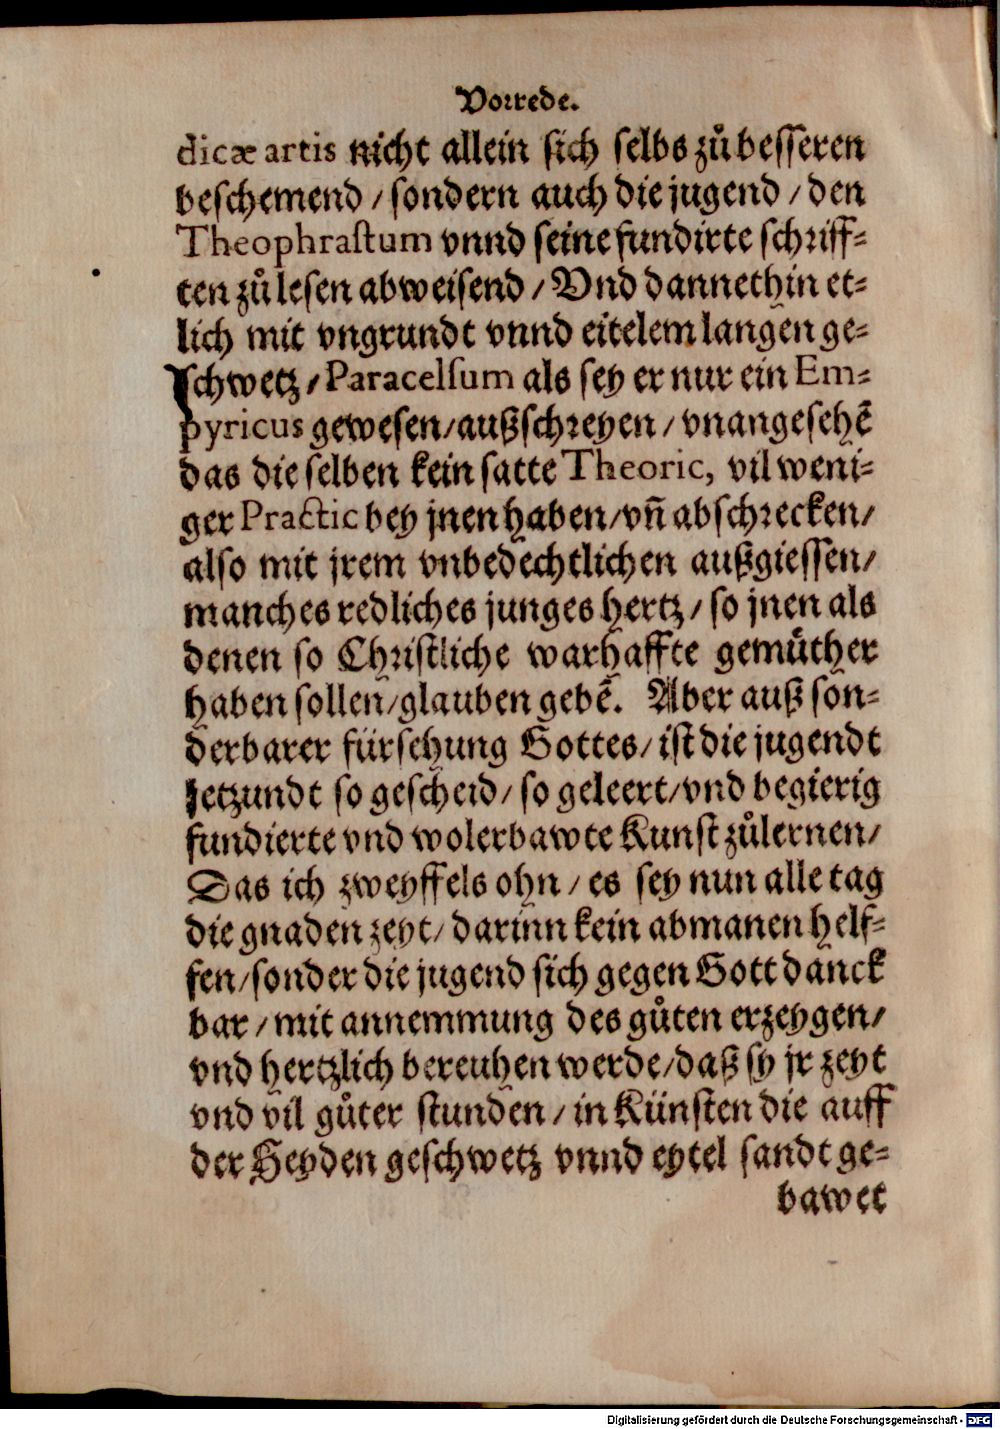 Vorrede.
dicæ artis nicht allein sich selbs zů besseren
beschemend / sondern auch die jugend / den
Theophrastum vnnd seine fundirte schriff⸗
ten zů lesen abweisend / Vnd dannethin et⸗
lich mit vngrundt vnnd eitelem langen ge⸗
schwetz / Paracelsum als sey er nur ein Em⸗
pyricus gewesen / außschreyen / vnangesehẽ
das die selben kein satte Theoric, vil weni⸗
ger Practic bey jnen haben / vñ abschrecken /
also mit jrem vnbedechtlichen außgiessen /
manches redliches junges hertz / so jnen als
denen so Christliche warhaffte gemůther
haben sollen / glauben gebẽ. Aber auß son⸗
derbarer fürsehung Gottes / ist die jugendt
jetzundt so gescheid / so geleert / vnd begierig
fundierte vnd wolerbawte Kunst zůlernen /
Das ich zweyffels ohn / es sey nun alle tag
die gnaden zeyt / darinn kein abmanen helf⸗
fen / sonder die jugend sich gegen Gott danck
bar / mit annemmung des gůten erzeygen /
vnd hertzlich bereuhen werde / daß sy jr zeyt
vnd vil gůter stunden / in Künsten die auff
der Heyden geschwetz vnnd eytel sandt ge⸗
bawet
Digitalisierung gefördert durch die Deutsche Forschungsgemeinschaft - DFG